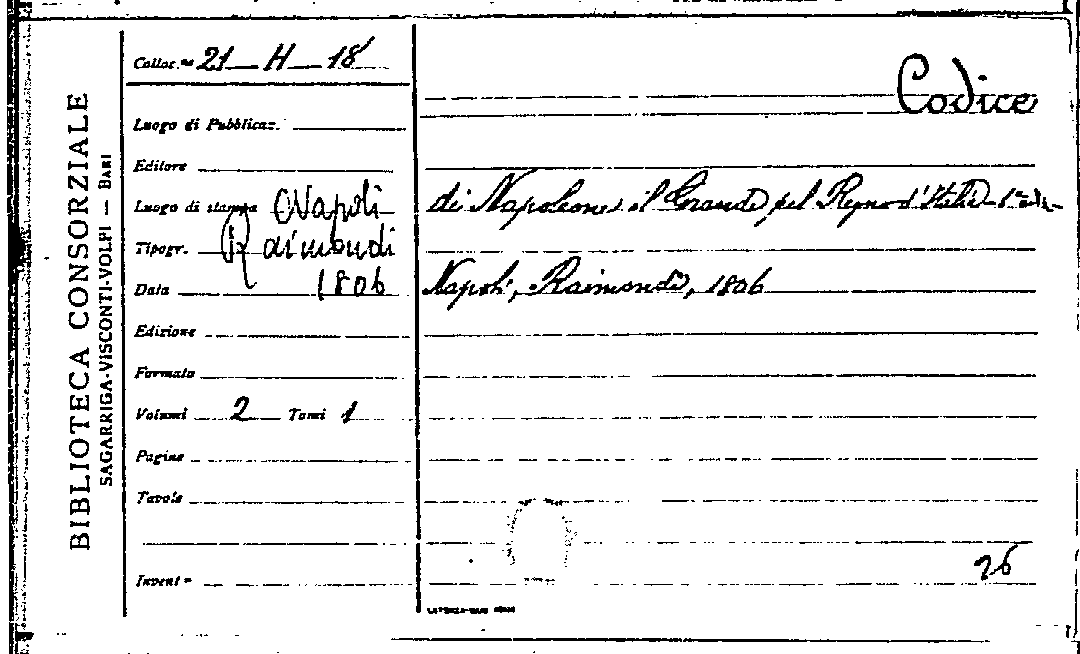 BIBLIOTECA CONSORZIALE
SAGARRIGA-VISCONTI-VOLPI — BARI
Colloc.ne 21 H 18
Luogo di Pubblicaz.
Editore
Luogo di stampa Napoli
Tipogr. Raimondi
Data 1806
Edizione
Formato
Volumi 2 Tomi 1
Pagine
Tavole
Invent.
Codice
di Napoleone il Grande pel Regno d'Italia
Napoli, Raimondi, 1806
26